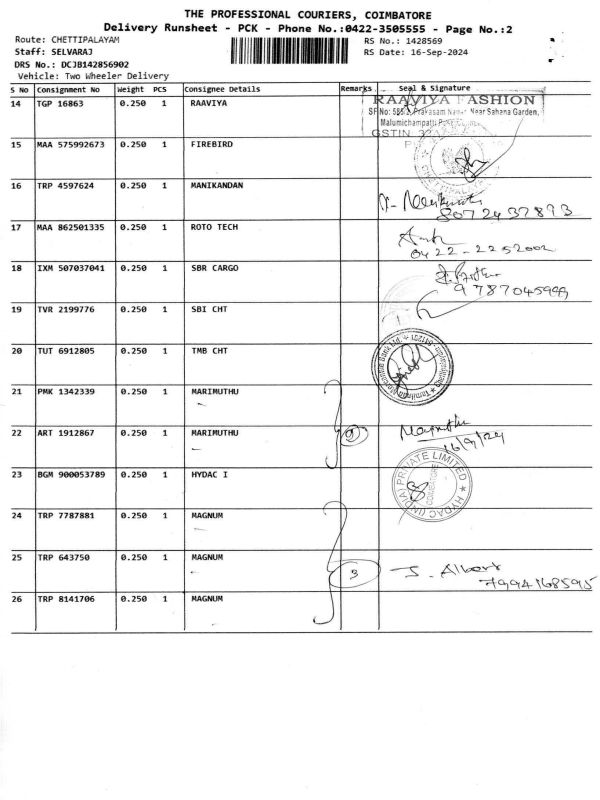 THE PROFESSIONAL COURIERS, COIMBATORE
Delivery Runsheet - PCK - Phone No.:0422-3505555 - Page No.:2
Route: CHETTIPALAYAM
RS No.: 1428569
Staff: SELVARAJ
RS Date: 16-Sep-2024
DRS No.: DCJB142856902
Vehicle: Two Wheeler Delivery
S No Consignment No Weight PCS Consignee Details Remarks Seal & Signature
14 TGP 16863 0.250 1 RAAVIYA
RAAVIYA FASHION
SF No: 585/2, Prakasam Nagar, Near Sahana Garden,
Malumichampatti
GSTIN
15 MAA 575992673 0.250 1 FIREBIRD
CHETTIPALAYAM
16 TRP 4597624 0.250 1 MANIKANDAN
8072437893
17 MAA 862501335 0.250 1 ROTO TECH
0422-2252002
18 IXM 507037041 0.250 1 SBR CARGO
9787045999
19 TVR 2199776 0.250 1 SBI CHT
20 TUT 6912805 0.250 1 TMB CHT
Tamilnad Mercantile Bank Ltd.
21 PMK 1342339 0.250 1 MARIMUTHU
22 ART 1912867 0.250 1 MARIMUTHU
16/9/24
23 BGM 900053789 0.250 1 HYDAC I
HYDAC (INDIA) PRIVATE LIMITED
COIMBATORE
24 TRP 7787881 0.250 1 MAGNUM
25 TRP 643750 0.250 1 MAGNUM 3
J. Albert
7994168595
26 TRP 8141706 0.250 1 MAGNUM